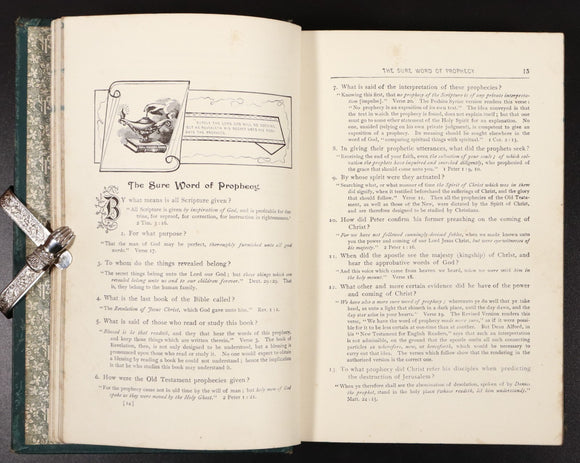 SURELY THE LORD GOD WILL DO NOTHING,
BUT HE REVEALETH HIS SECRET UNTO HIS SERV-
ANTS THE PROPHETS.
The Sure Word of Prophecy.
BY what means is all Scripture given?
"All Scripture is given by inspiration of God, and is profitable for doc-
trine, for reproof, for correction, for instruction in righteousness."
2 Tim. 3 : 16.
2. For what purpose?
"That the man of God may be perfect, thoroughly furnished unto all good
works." Verse 17.
3. To whom do the things revealed belong?
"The secret things belong unto the Lord our God; but those things which are
revealed belong unto us and to our children forever." Deut. 29:29. That
is, they belong to the human family.
4. What is the last book of the Bible called?
"The Revelation of Jesus Christ, which God gave unto him." Rev. 1 : 1.
5. What is said of those who read or study this book?
"Blessed is he that readeth, and they that hear the words of this prophecy,
and keep those things which are written therein." Verse 3. The book of
Revelation, then, is not only designed to be understood, but a blessing is
pronounced upon those who read or study it. No one would expect to obtain
a blessing by reading a book he could not understand; hence the implication
is that he who studies this book may understand it.
6. How were the Old Testament prophecies given?
"For the prophecy came not in old time by the will of man; but holy men of God
spake as they were moved by the Holy Ghost." 2 Peter 1 : 21.
THE SURE WORD OF PROPHECY 15
7. What is said of the interpretation of these prophecies?
"Knowing this first, that no prophecy of the Scripture is of any private interpreta-
tion [impulse]." Verse 20. The Peshito Syriac version readers this verse:
"No prophecy is an exposition of its own text." The idea conveyed is that
the text in which the prophecy is found, does not explain itself; but that one
must go to some other statement of the Holy Spirit for an explanation. No
one, unaided (relying on his own private judgment), is competent to give an
exposition of a prophecy. Its meaning should be sought elsewhere in the
word of God, "comparing spiritual things with spiritual." 1 Cor. 2 : 13.
8. In giving their prophetic utterances, what did the prophets seek?
"Receiving the end of your faith, even the salvation of your souls; of which sal-
vation the prophets have inquired and searched diligently, who prophesied of
the grace that should come unto you." 1 Peter 1 : 9, 10.
9. By whose spirit were they actuated?
"Searching what, or what manner of time the Spirit of Christ which was in them
did signify, when it testified beforehand the sufferings of Christ, and the glory
that should follow." Verse 11. Then all the prophecies of the Old Testa-
ment, as well as those of the New, were dictated by the Spirit of Christ,
and are therefore designed to be studied by Christians.
10. How did Peter confirm his former preaching on the coming of
Christ?
"For we have not followed cunningly devised fables, when we made known unto
you the power and coming of our Lord Jesus Christ, but were eyewitnesses
of his majesty." 2 Peter 1 : 16.
11. When did the apostle see the majesty (kingship) of Christ, and
hear the approbative words of God?
"And this voice which came from heaven we heard, when we were with him in
the holy mount." Verse 18.
12. What other and more certain evidence did he have of the power
and coming of Christ?
"We have also a more sure word of prophecy; whereunto ye do well that ye take
heed, as unto a light that shineth in a dark place, until the day dawn, and the
day star arise in your hearts." Verse 19. The Revised Version renders this
verse, "We have the word of prophecy made more sure," as if it were possi-
ble for it to be less certain at one time than at another. But Dean Alford, in
his "New Testament for English Readers," says that such an interpretation
is not admissible, on the ground that the apostle omits all such connecting
particles as wherefore, now, or henceforth, which would be necessary to
carry out that idea. The verses which follow show that the rendering in the
authorized version is the correct one.
13. To what prophecy did Christ refer his disciples when predicting
the destruction of Jerusalem?
"When ye therefore shall see the abomination of desolation, spoken of by Daniel
the prophet, stand in the holy place (whoso readeth, let him understand)."
Matt. 24 : 15.